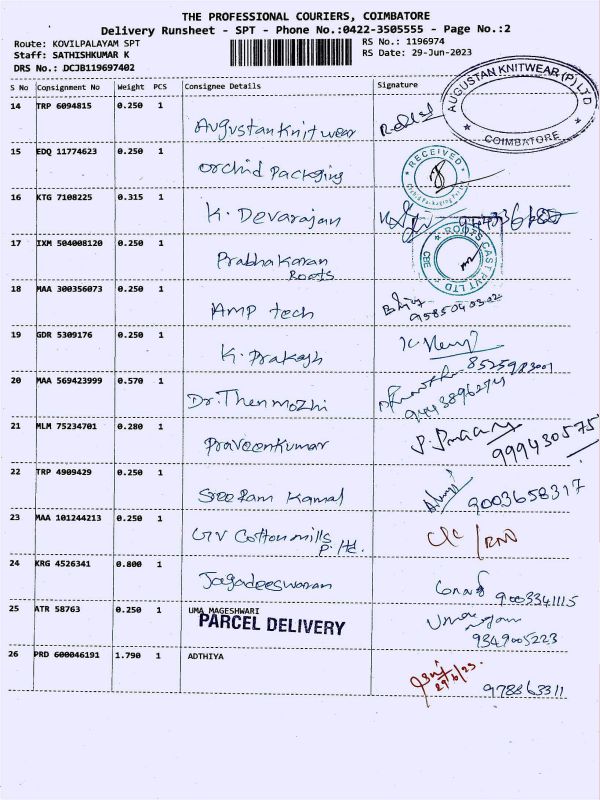 THE PROFESSIONAL COURIERS, COIMBATORE
Delivery Runsheet - SPT - Phone No.:0422-3505555 - Page No.:2
Route: KOVILPALAYAM SPT
RS No.: 1196974
Staff: SATHISHKUMAR K
RS Date: 29-Jun-2023
DRS No.: DCJB119697402
S No Consignment No Weight PCS Consignee Details Signature
AUGUSTAN KNITWEAR (P) LTD
COIMBATORE
14 TRP 6094815 0.250 1
Augustan Knit wear
15 EDQ 11774623 0.250 1
RECEIVED
Orchid Packaging
16 KTG 7108225 0.315 1
K. Devarajan
17 IXM 504008120 0.250 1
ROOTS CAST PVT LTD
CBE
Prabhakaran
Roots
18 MAA 300356073 0.250 1
AMP tech
9585040302
19 GDR 5309176 0.250 1
K. Prakash
20 MAA 569423999 0.570 1
Dr. Thenmozhi
9443896274
21 MLM 75234701 0.280 1
Praveenkumar
999430575
22 TRP 4909429 0.250 1
Sree Ram Kamal
9003658317
23 MAA 101244213 0.250 1
GV Cottonmills
P. ltd.
24 KRG 4526341 0.800 1
Jagadeeswaran
9003341115
25 ATR 58763 0.250 1 UMA MAGESHWARI
PARCEL DELIVERY
9349005223
26 PRD 600046191 1.790 1 ADTHIYA
29/6/23.
978863311